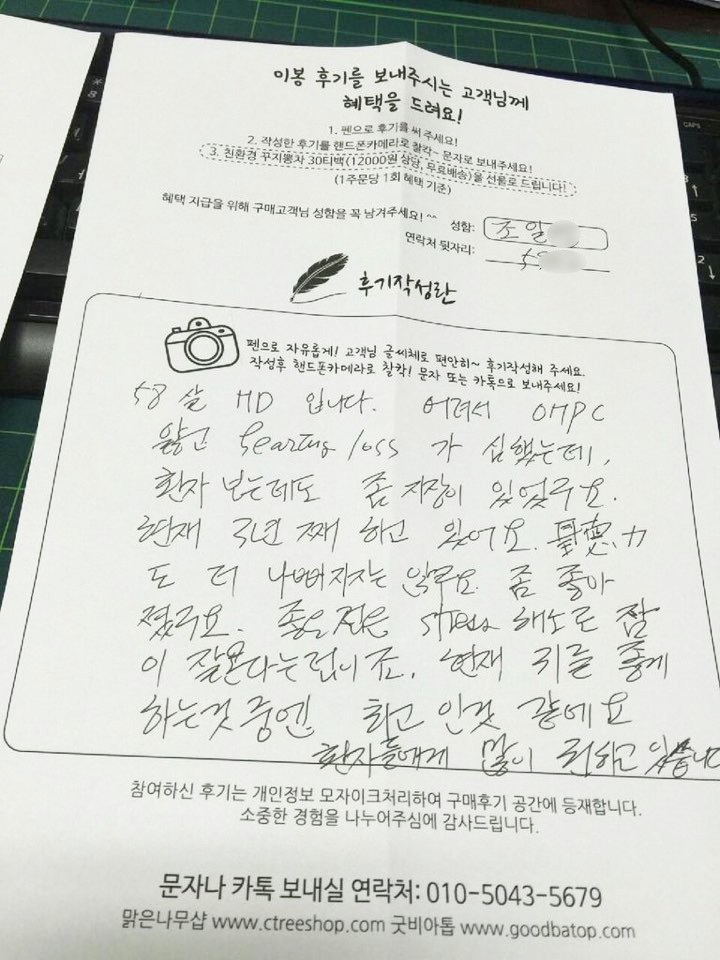 이봉 후기를 보내주시는 고객님께
혜택을 드려요!
1. 펜으로 후기를 써 주세요!
2. 작성한 후기를 핸드폰카메라로 찰칵~ 문자로 보내주세요!
3. 친환경 꾸지뽕차 30티백(12000원 상당, 무료배송)을 선물로 드립니다!
(1주문당 1회 혜택 기준)
혜택 지급을 위해 구매고객님 성함을 꼭 남겨주세요! ^^ 성함: 조일
연락처 뒷자리: 5
후기작성란
펜으로 자유롭게! 고객님 글씨체로 편안히~ 후기작성해 주세요.
작성후 핸드폰카메라로 찰칵! 문자 또는 카톡으로 보내주세요!
58살 HD 입니다. 어려서 OHPC
앓고 hearing loss 가 심했는데,
환자 보는데도 좀 지장이 있었구요.
현재 3년 째 하고 있어요. 력
도 더 나빠지자는 않구요 좀 좋아
졌구요. 좋은점은 stress 해소로 잠
이 잘온다는점이죠. 현재 귀를 좋게
하는것 중엔 최고 인것 같에요
환자들에게 많이 권하고 있습니다
참여하신 후기는 개인정보 모자이크처리하여 구매후기 공간에 등재합니다.
소중한 경험을 나누어주심에 감사드립니다.
문자나 카톡 보내실 연락처: 010-5043-5679
맑은나무샵 www.ctreeshop.com 굿비아톱 www.goodbatop.com